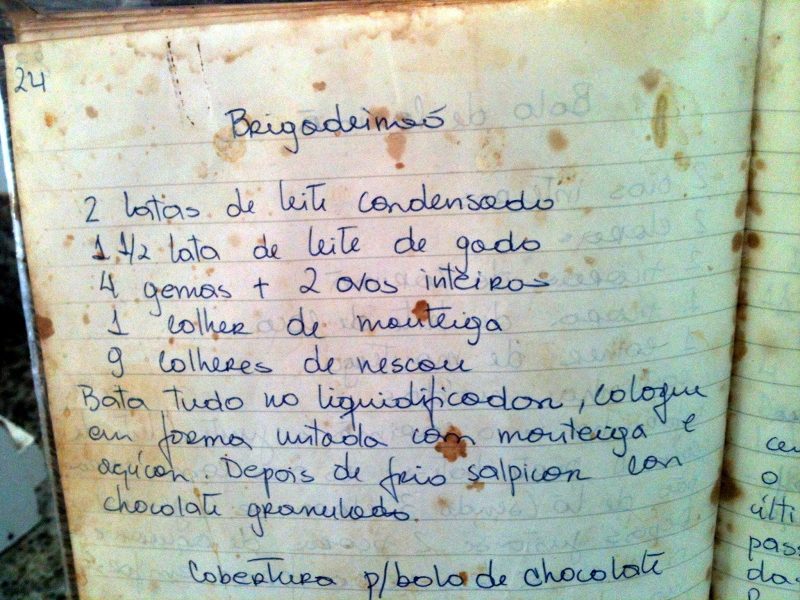 24
Brigadeimaó
2 latas de leite condensado
1 1/2 lata de leite de gado
4 gemas + 2 ovos inteiros
1 colher de manteiga
9 colheres de nescau
Bata tudo no liquidificador, coloque
em forma untada com manteiga e
açúcar. Depois de frio salpicar con
chocolate granulado.
Cobertura p/bolo de chocolate
cen
o
últi
pass
das